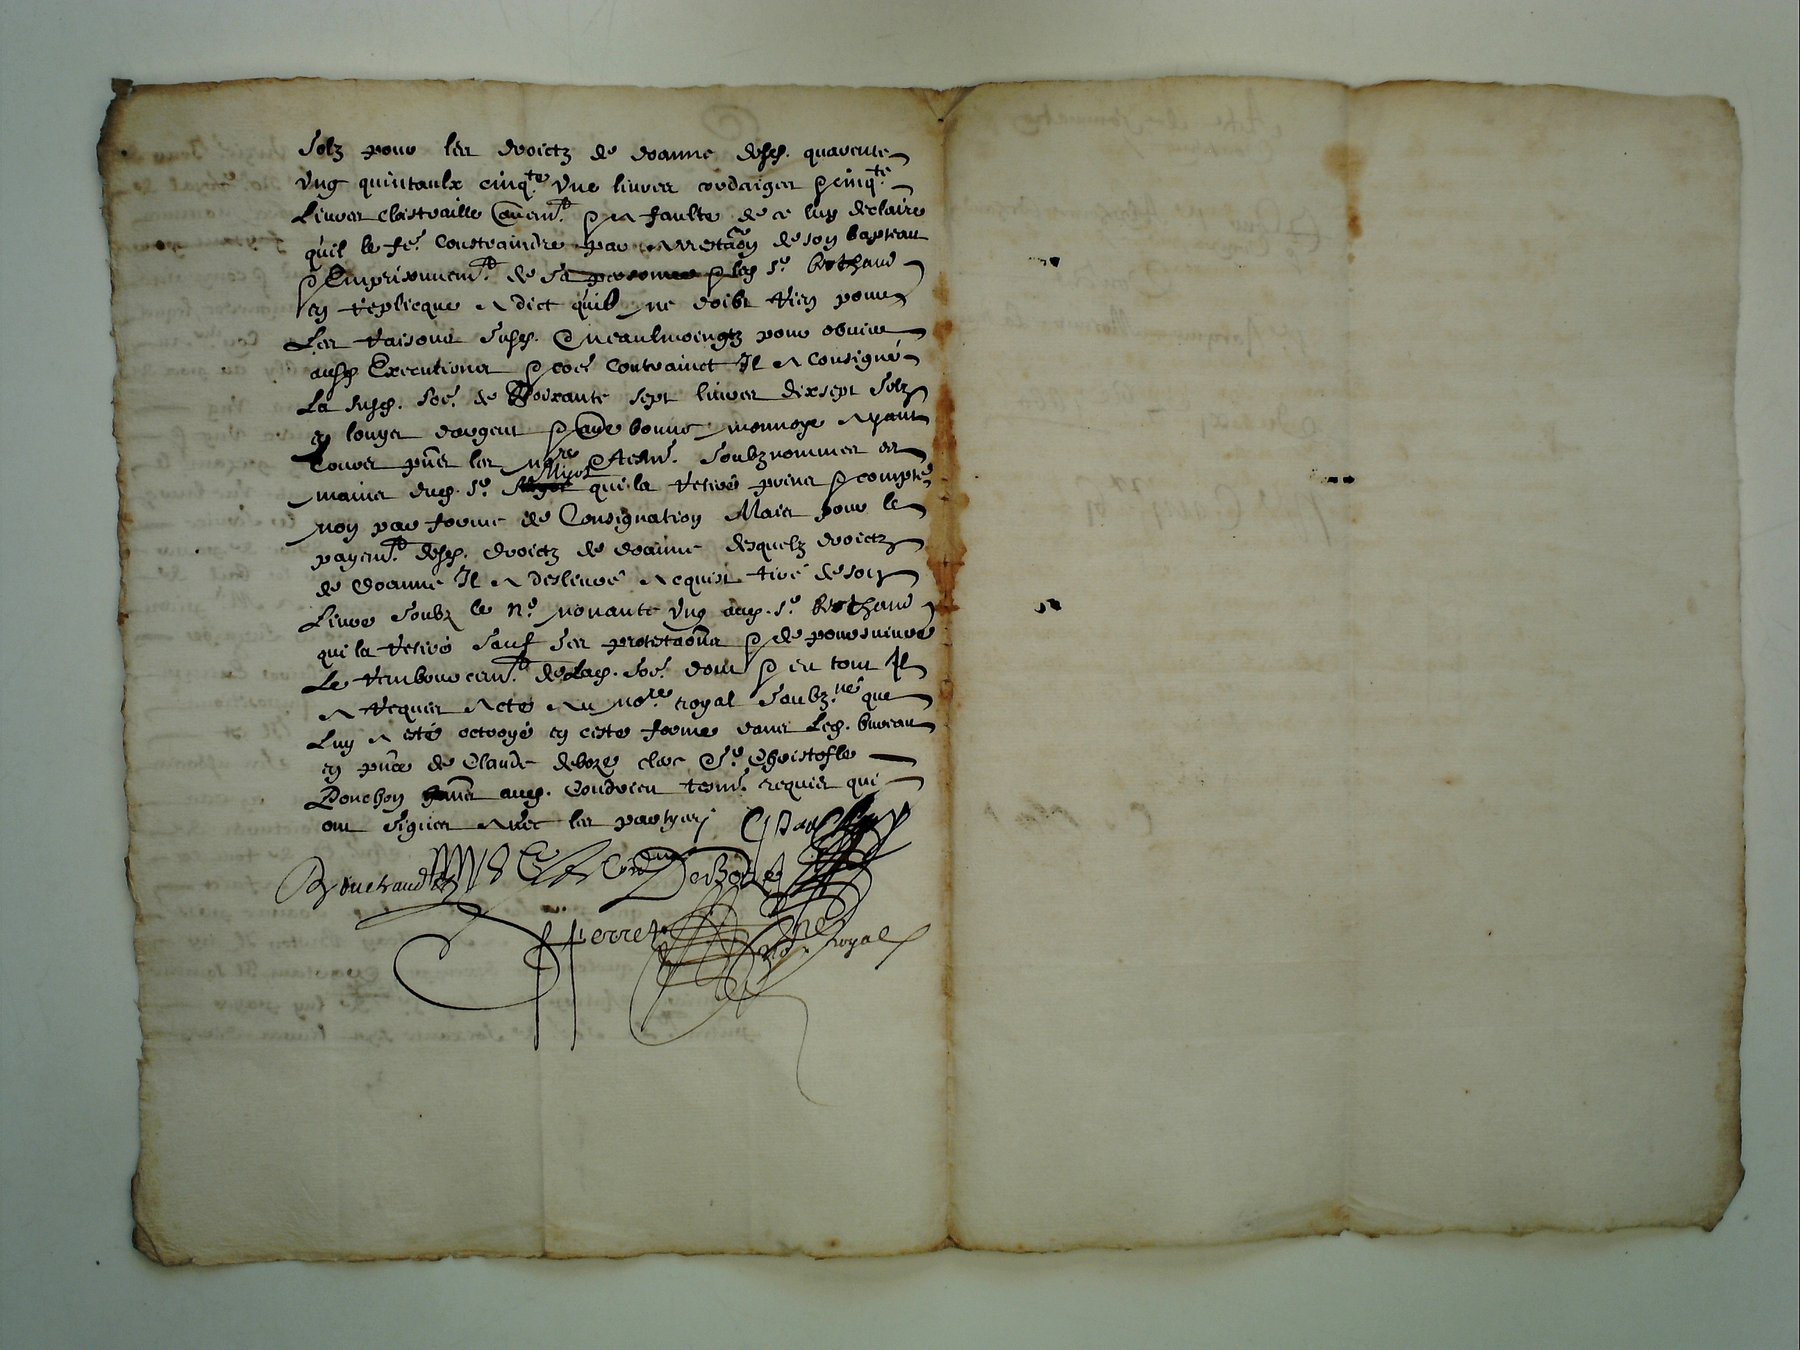 solz pour les droictz de doanne desd. quarente
ung quintaulx cinq.te une livres cordaiges & cinq.te
livres clastraille & a faulte de ce luy declaire
quil le fe.a constraindre par arresta͠on de son bapteau
& Emprisonnem.t de sa personne & led s.r Brthaud
en replicque a dict quil ne doibt rien pour
les raisons susd. & neaulmoingtz pour obvier
ausd Executions & coe contrainct Il a consigné
la susd. soe. de Soixante sept livres dixsept solz
en louys dargent & bonne monnoye ayant
cours pn̄s les no.re & tesm. soubznommes es
mains dud. s.r Migot qui la retiré prins & compté
non par forme de Consignation Mais pour le
payem.t desd. droictz de doanne desquelz droictz
de doanne Il a deslivré acquist tiré de son
livre soubz le n.o nonante ung aud. s.r Brthaud
qui la retiré sauf ses protesta͠ons & de poursuivre
le rembourcem.t de lad. soe. dont & du tout Il
a requis acte au no.re royal soubz.né que
luy a esté octroyé en ceste forme dans led. bureau
en pn̄ce de Claude deboze clerc & s.r Christofle
Donchon aud. Condrieu tesm. requis qui
ont signés avec les partyes
DeBoze
fferret no.re royal